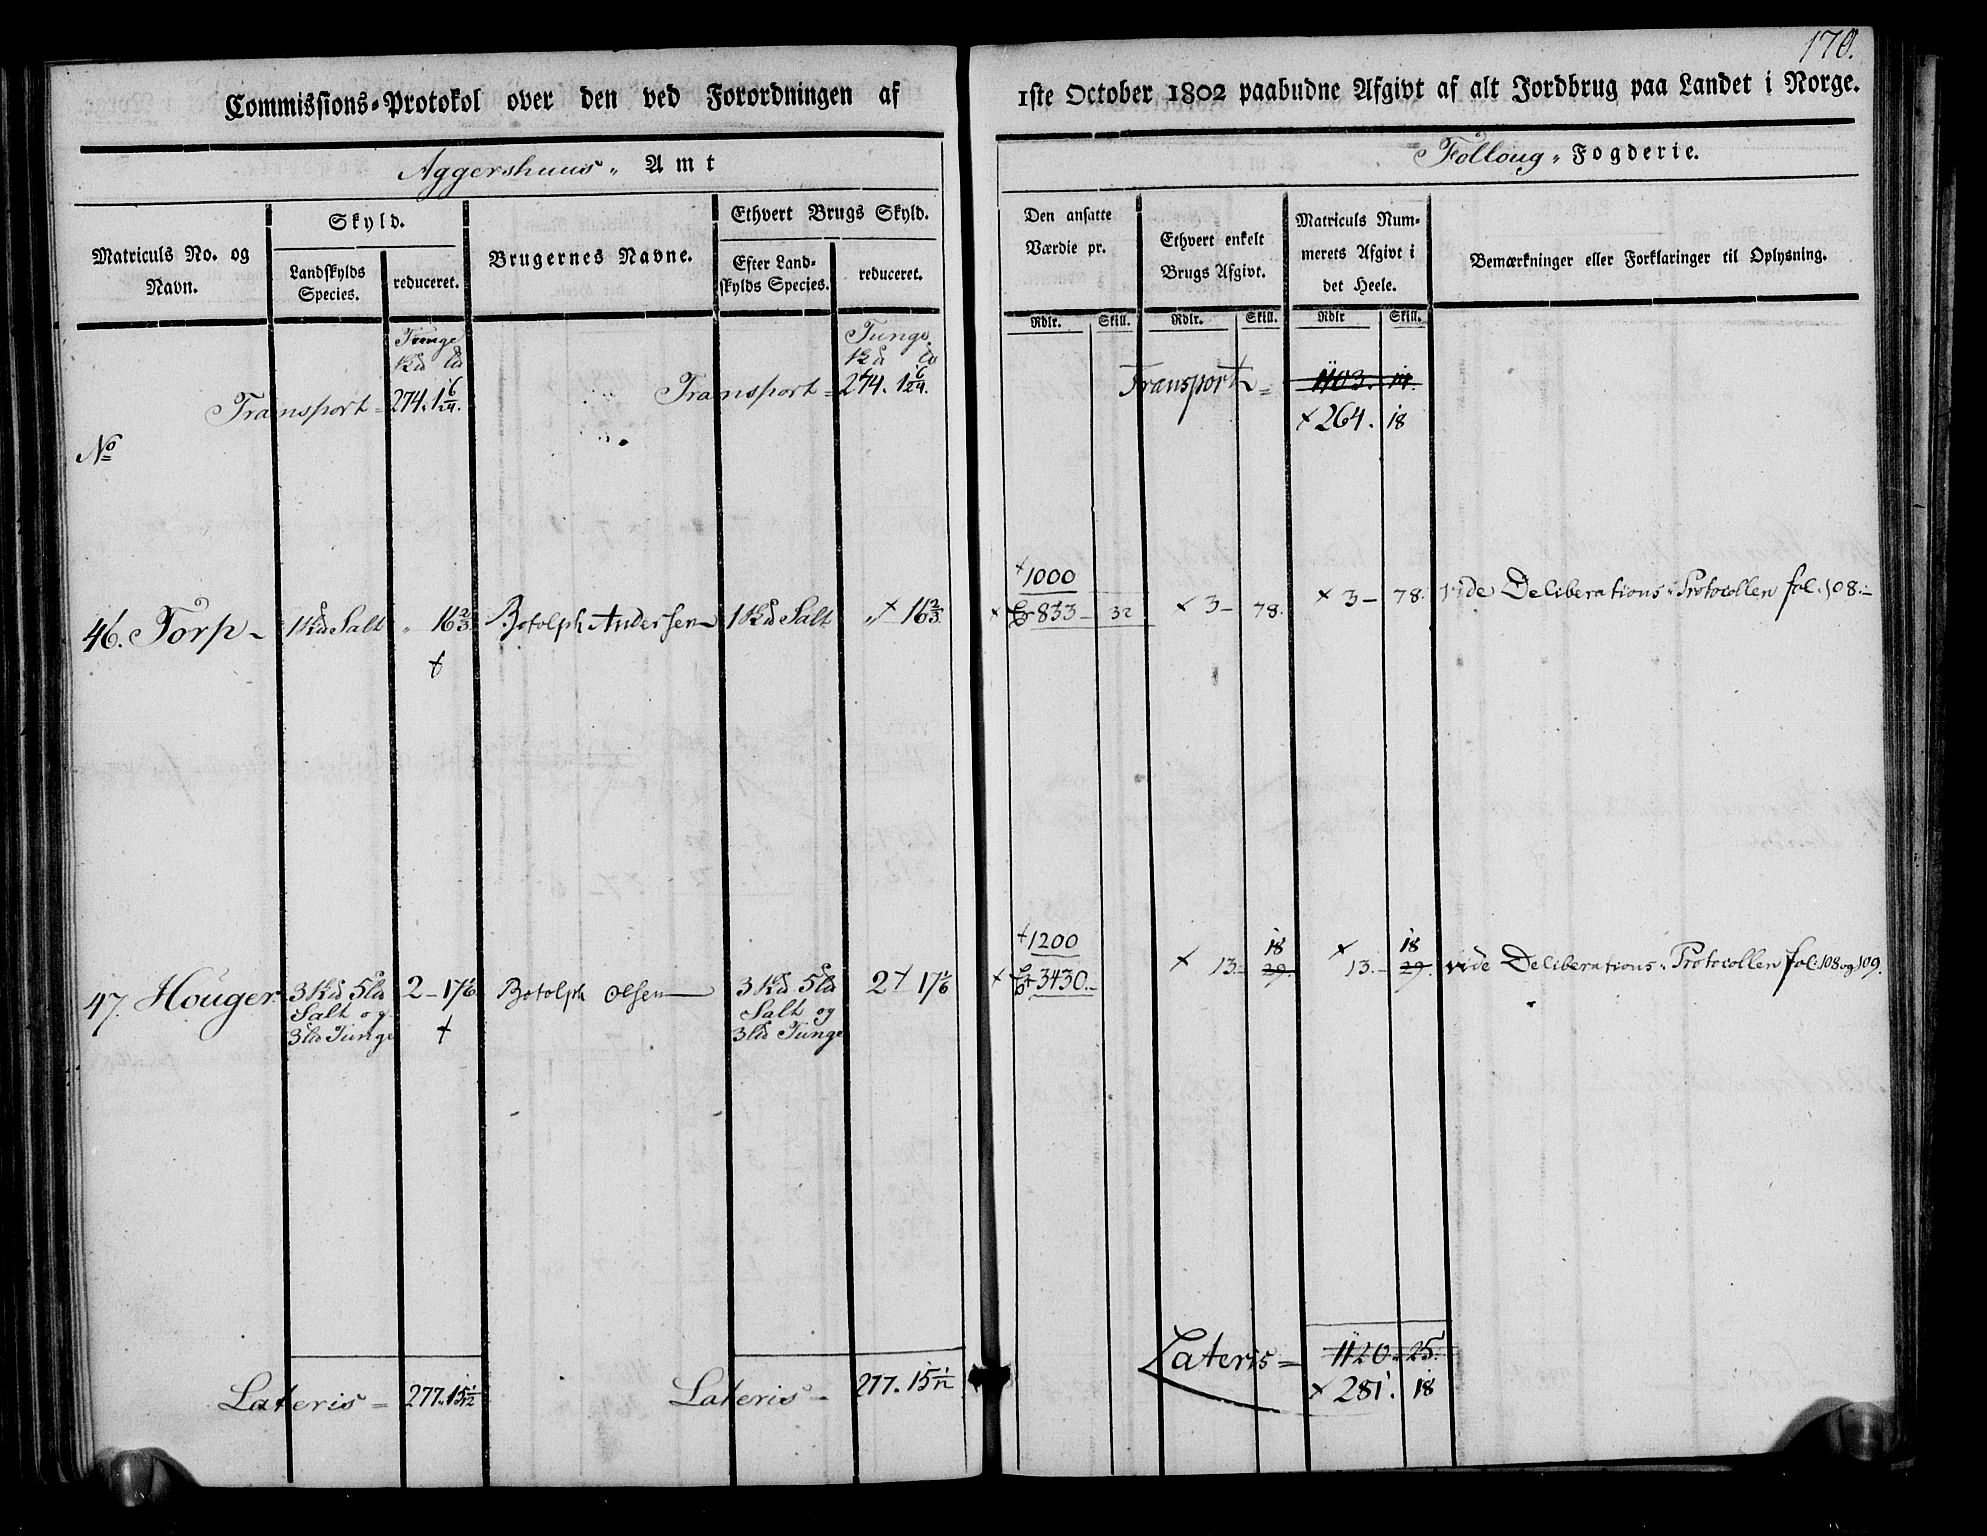 170.
Commissions-Protokol over den ved Forordningen af 1ste October 1802 paabudne Afgivt af alt Jordbrug paa Landet i Norge.
Aggershuus „ Amt
Folloug „ Fogderie.
Matriculs No. og Navn.
Skyld.
Landskylds Species.
reduceret.
Brugernes Navne.
Ethvert Brugs Skyld.
Efter Landskylds Species.
reduceret.
Den ansatte Værdie pr.
Ethvert enkelt Brugs Afgivt.
Matriculs Nummerets Afgivt i det Heele.
Bemærkninger eller Forklaringer til Oplysning.
Rdlr. Skill. Rdlr. Skill. Rdlr Skill.
Tunge Tunge
Transport = 274. 1 6/24. Transport = 274. 1 6/24. Transport =
× 264. 18
No
+ 1000
46. Torp - 1 Salt „ 16 2/3 Botolph Andersen 1 Salt „ × 16 2/3 × 833 - 32 × 3 - 78. × 3 - 78. vide Deliberations-Protocollen fol. 108.-
+ 1200 18 18
47. Houger 3 5 Salt og 3 Tunge 2 - 17 1/6 Botolph Olsen 3 5 Salt og 3 Tunge 2 + 17 1/6 × 3430.- × 13.- 29. × 13.- 29. vide Deliberations-Protocollen fol. 108 og 109.
Lateris = 277. 15 1/12 Lateris - 277. 15 1/12 Lateris = 1120. 25.
× 281. 18